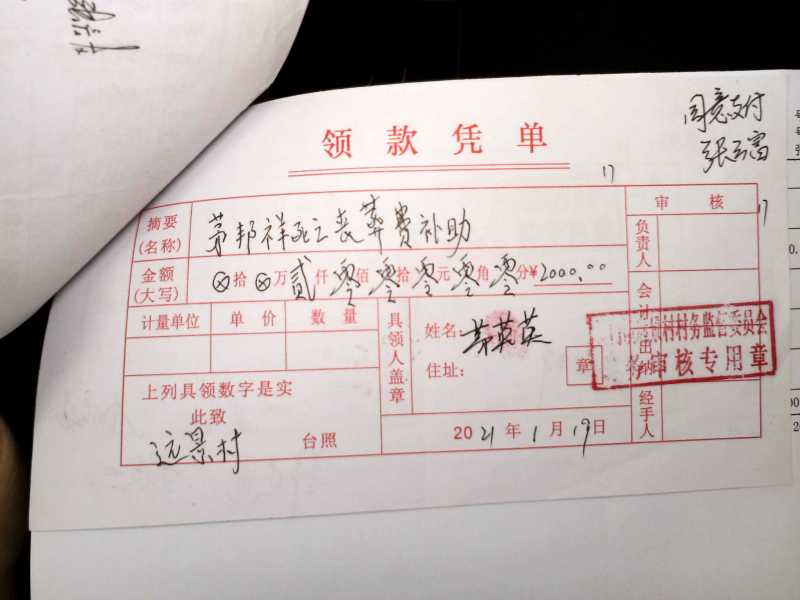 同意支付
领款凭单
审核
摘要
(名称)
茅邦祥死亡丧葬费补助
负责人
金额
(大写)
⊗拾⊗万贰仟零佰零拾零元零角零分¥2000.00
计量单位 单价 数量
具领人盖章
姓名:茅英英
住址:
章
会计
审核专用章
上列具领数字是实
此致
远景村 台照
2021年1月19日
经手人